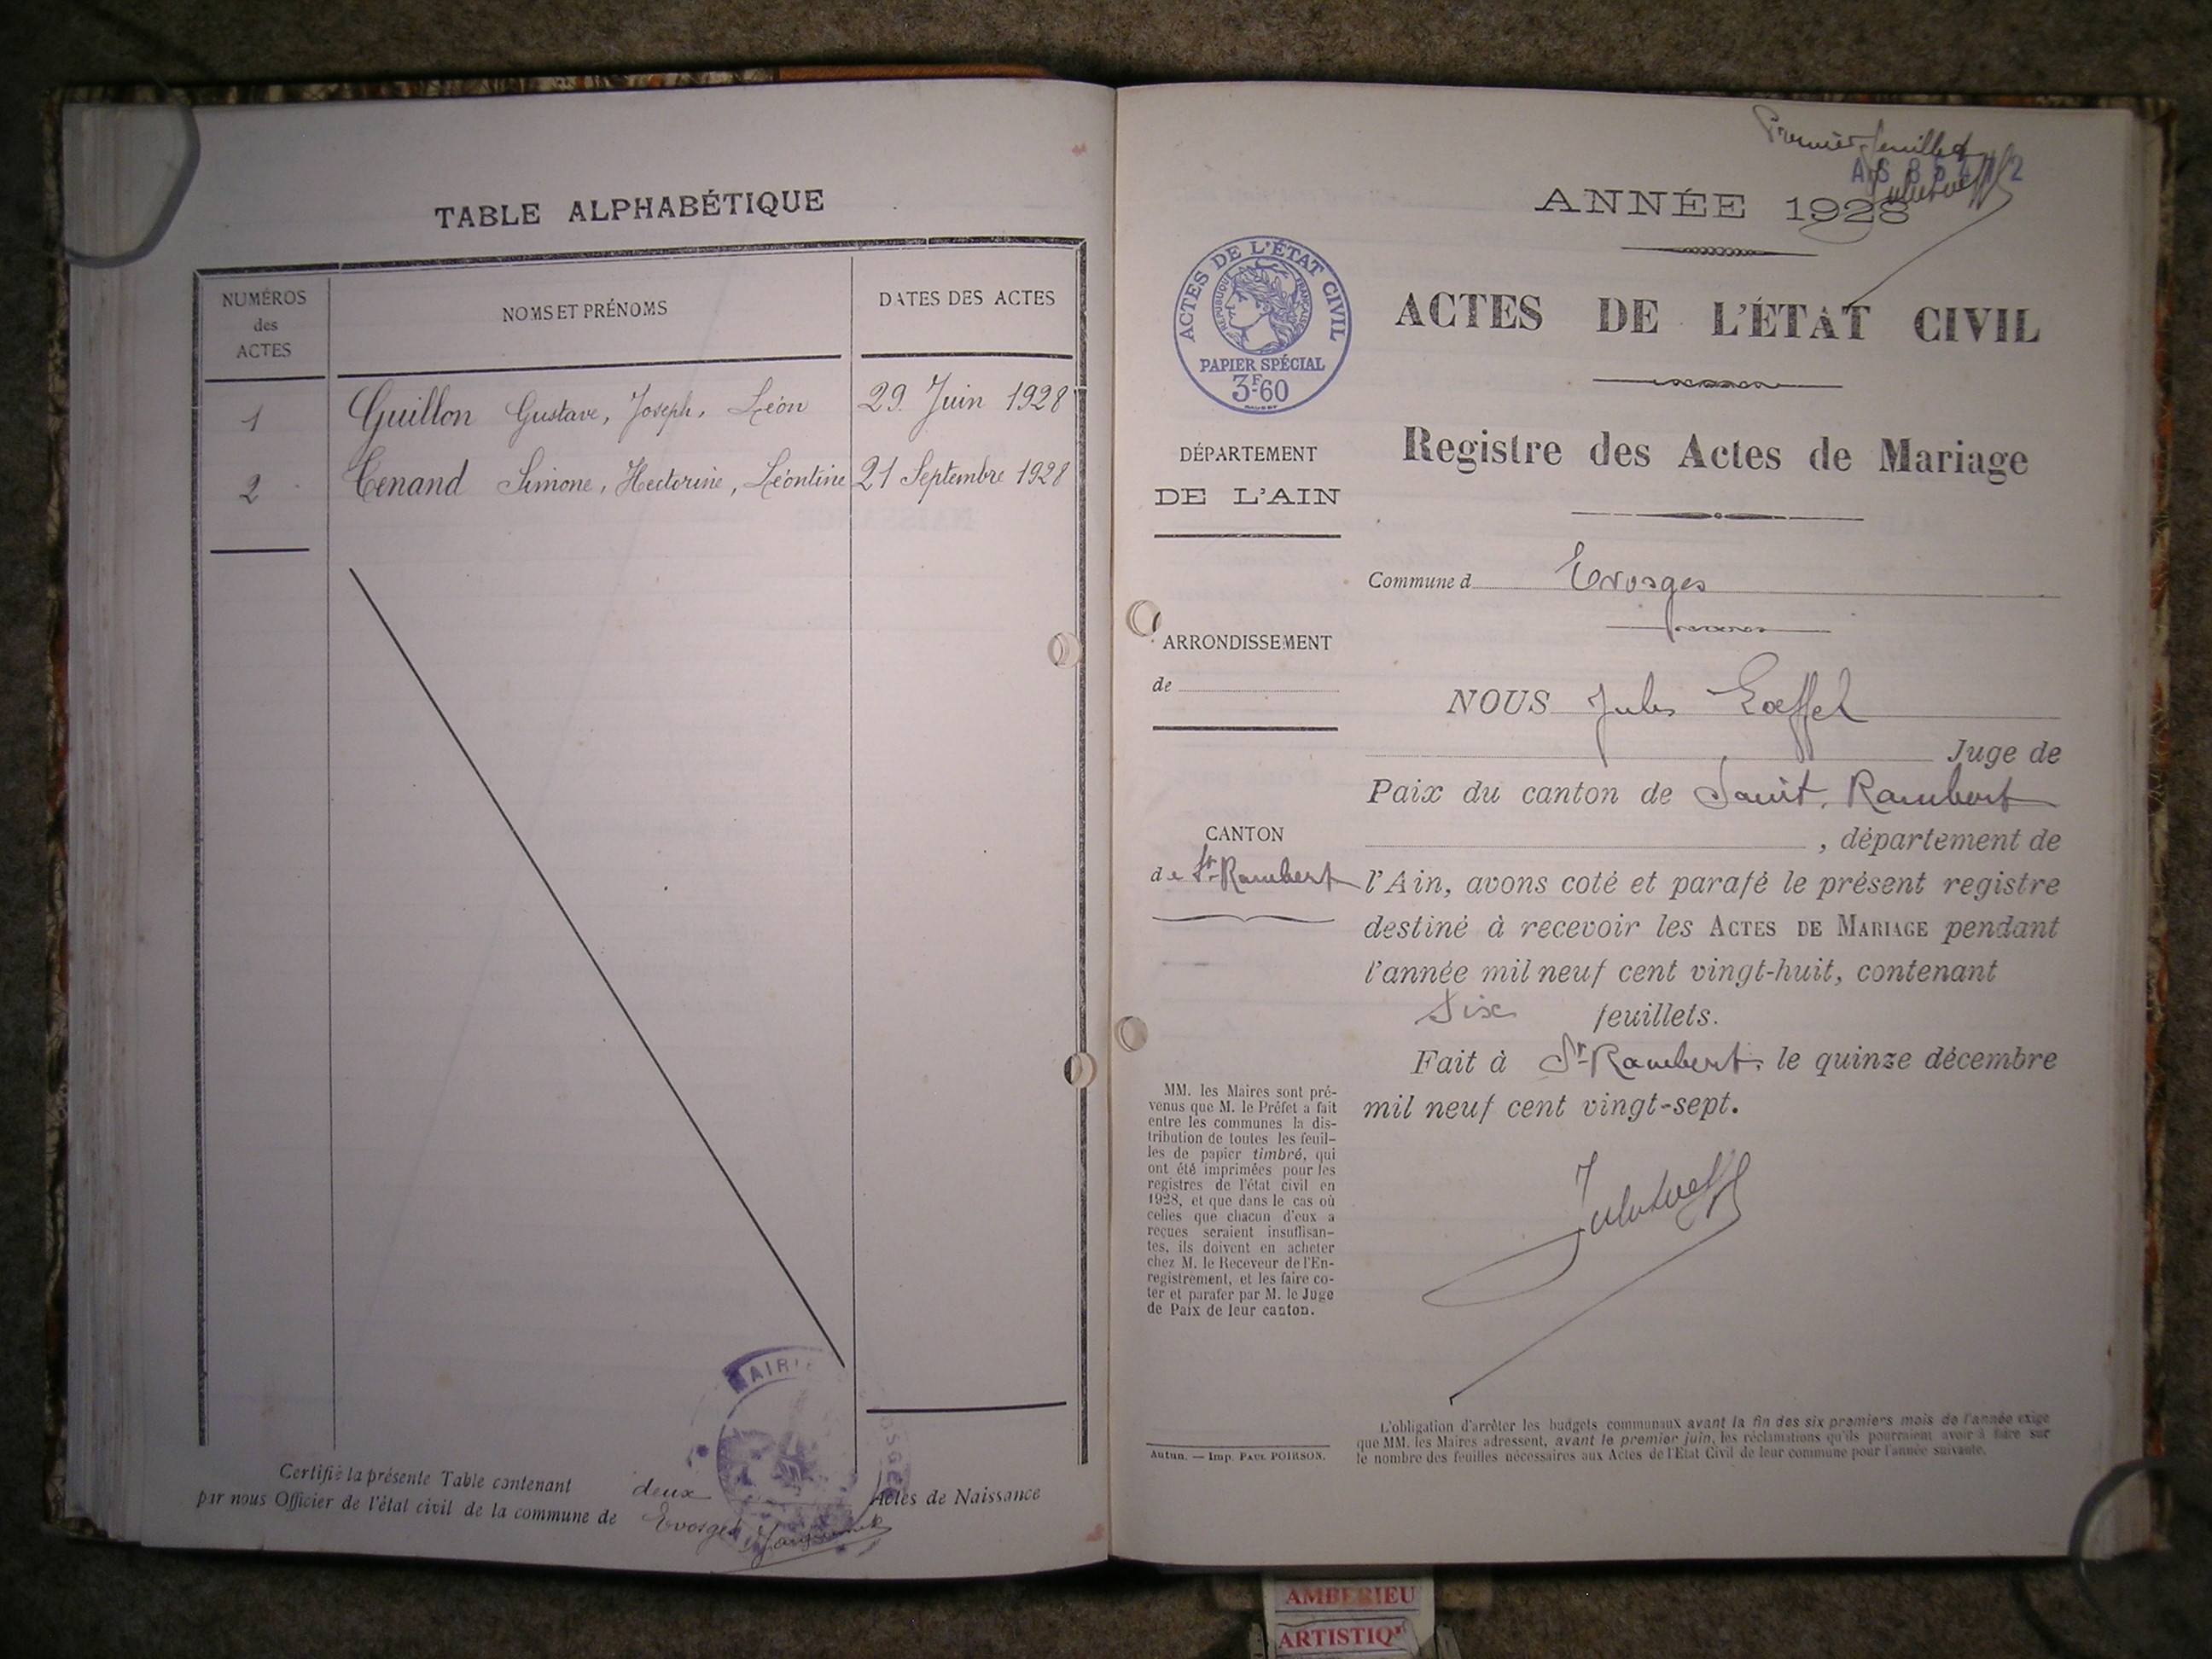 TABLE ALPHABÉTIQUE
NUMÉROS
des
ACTES
NOMS ET PRÉNOMS
DATES DES ACTES
1 Guillon Gustave, Joseph, Léon 29 Juin 1928
2 Tenand Simone, Hectorine, Léontine 21 Septembre 1928
MAIRIE
Certifié la présente Table contenant deux Actes de Naissance
par nous Officier de l'état civil de la commune de Evosges
Premier feuillet
ANNÉE 1928
ACTES DE L'ÉTAT CIVIL
RÉPUBLIQUE FRANÇAISE
PAPIER SPÉCIAL
3F60
ACTES DE L'ÉTAT CIVIL
Registre des Actes de Mariage
DÉPARTEMENT
DE L'AIN
Commune d Evosges
ARRONDISSEMENT
de
CANTON
de St-Rambert
NOUS Jules Loeffel
Juge de
Paix du canton de Saint. Rambert
, département de
l'Ain, avons coté et parafé le présent registre
destiné à recevoir les ACTES DE MARIAGE pendant
l'année mil neuf cent vingt-huit, contenant
six feuillets.
Fait à St-Rambert, le quinze décembre
mil neuf cent vingt-sept.
MM. les Maires sont pré-
venus que M. le Préfet a fait
entre les communes la dis-
tribution de toutes les feuil-
les de papier timbré, qui
ont été imprimées pour les
registres de l'état civil en
1928, et que dans le cas où
celles que chacun d'eux a
reçues seraient insuffisan-
tes, ils doivent en acheter
chez M. le Receveur de l'En-
registrement, et les faire co-
ter et parafer par M. le Juge
de Paix de leur canton.
Autun. — Imp. PAUL POIRSON.
L'obligation d'arrêter les budgets communaux avant la fin des six premiers mois de l'année exige
que MM. les Maires adressent, avant le premier juin, les réclamations qu'ils pourraient avoir à faire sur
le nombre des feuilles nécessaires aux Actes de l'Etat Civil de leur commune pour l'année suivante.
AMBERIEU
ARTISTIQ